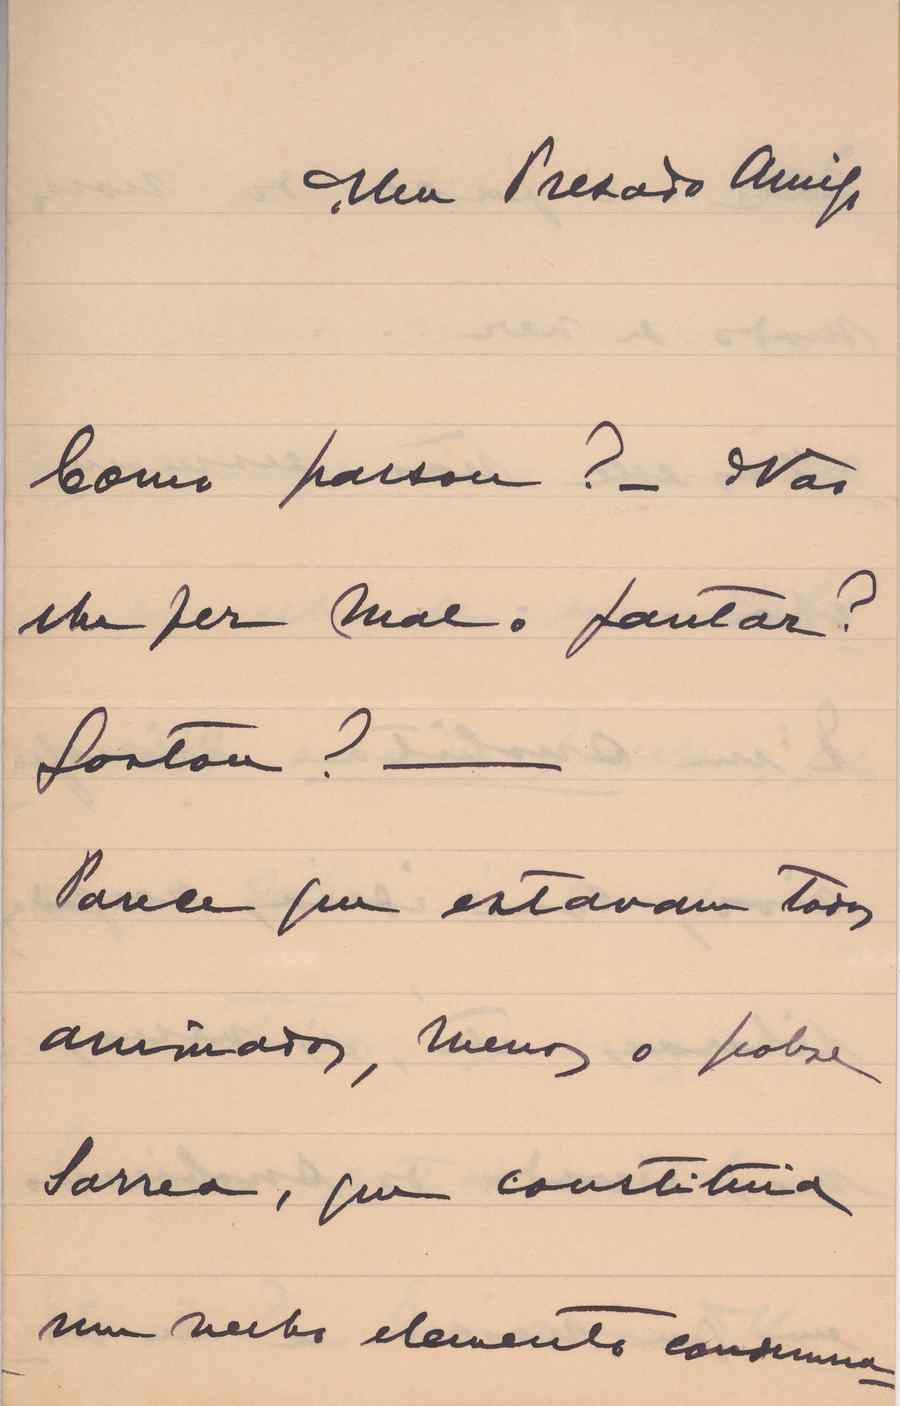 Meu Presado Amigo
Como passou? – Não
lhe fez mal o jantar?
Gostou? —
Parece que estavam todos
animados, menos o pobre
Sarrea, que constituia
um velho elemento condemna=